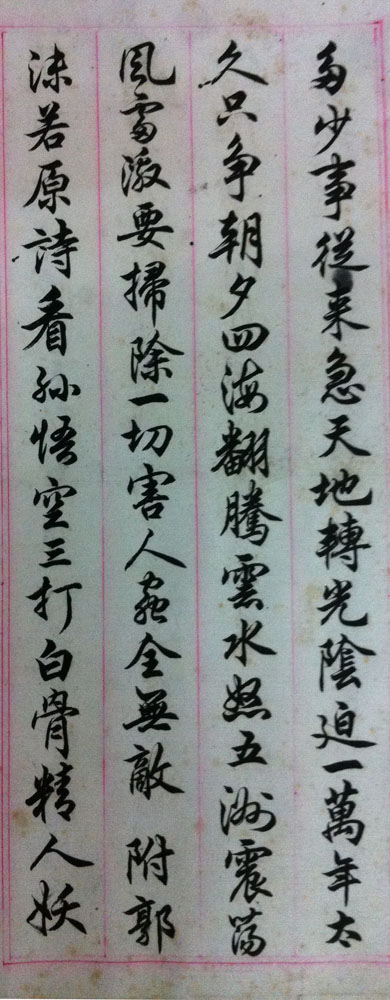 多少事從来急天地轉光陰迫一萬年太
久只争朝夕四海翻騰雲水怒五洲震蕩
風雷激要掃除一切害人蟲全無敵 附郭
沫若原詩看孫悟空三打白骨精人妖